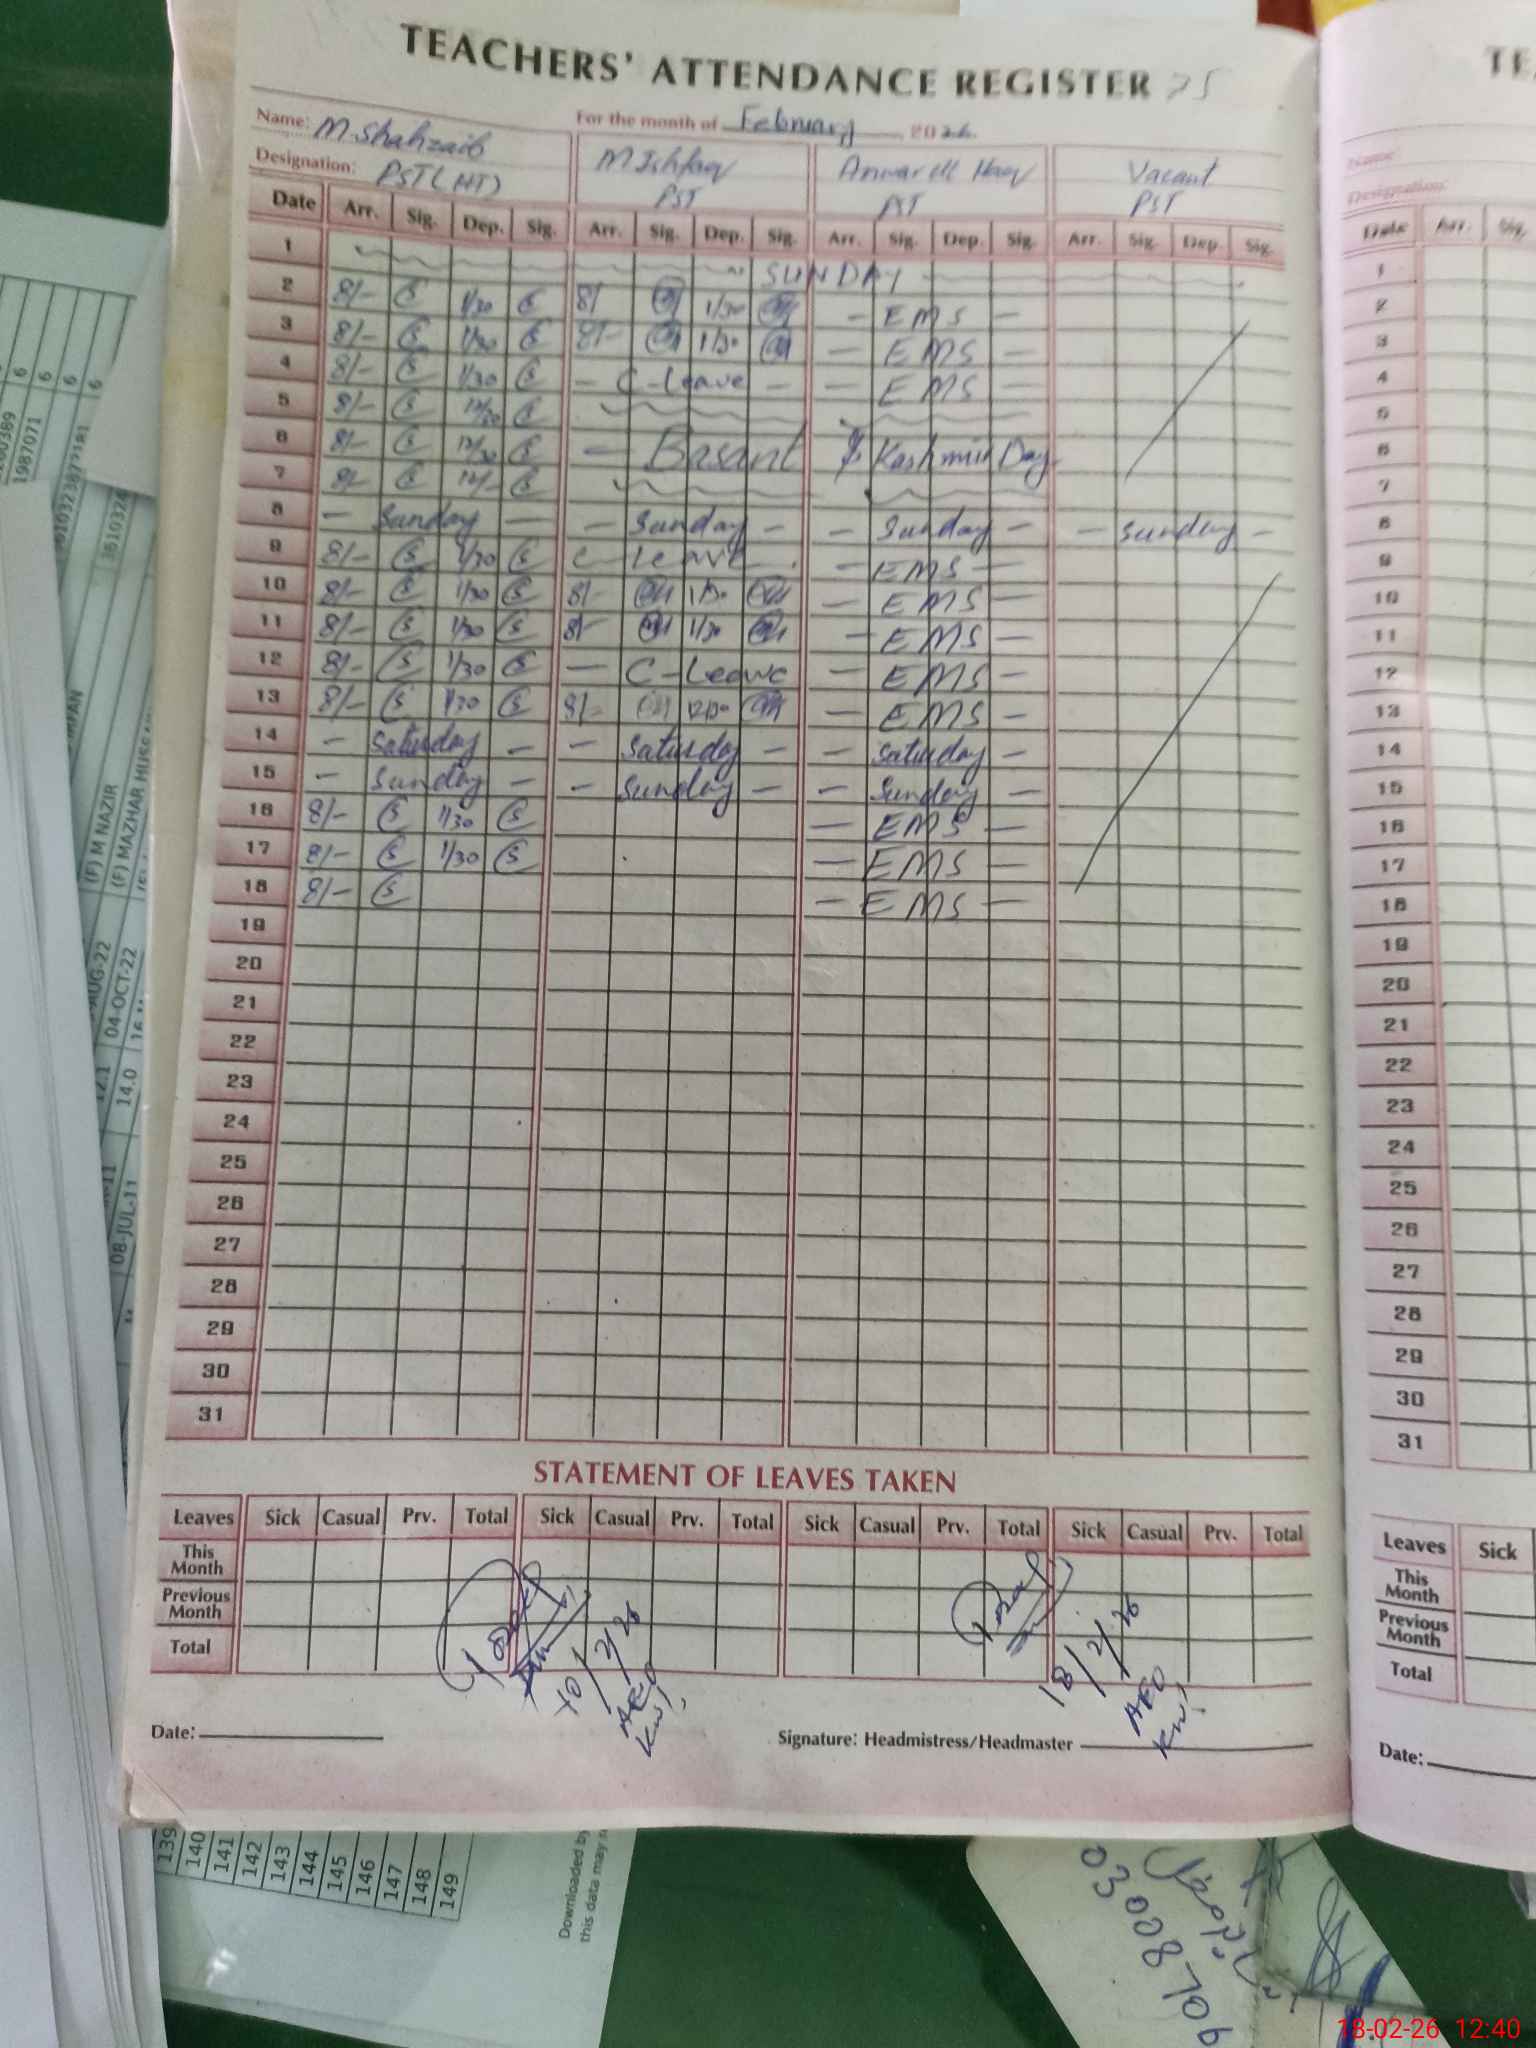 TEACHERS' ATTENDANCE REGISTER 75
Name: M.Shahzaib For the month of February 2026.
Designation: PST(HT) M Ishfaq PST Anwar Ul Haq PST Vacant PST
Date Arr. Sig. Dep. Sig. Arr. Sig. Dep. Sig. Arr. Sig. Dep. Sig. Arr. Sig. Dep. Sig.
1 SUNDAY
2 8/- S 1/30 S 8/ 1/30 - EMS -
3 8/- S 1/30 S 8/- 1/30 - EMS -
4 8/- S 1/30 S - C-Leave - - EMS -
5 8/- S 12/30 S
6 8/- S 12/30 S - Basant & Kashmir Day
7 8/- S 12/- S
8 - Sunday - - Sunday - - Sunday - - Sunday -
9 8/- S 1/30 S C- Leave - EMS -
10 8/- S 1/30 S 8/- 1/30 - EMS -
11 8/- S 1/30 S 8/- 1/30 - EMS -
12 8/- S 1/30 S - C-Leave - EMS -
13 8/- S 1/30 S 8/- 12/30 - EMS -
14 - Saturday - - Saturday - - Saturday -
15 - Sunday - - Sunday - - Sunday -
16 8/- S 1/30 S - EMS -
17 8/- S 1/30 S - EMS -
18 8/- S - EMS -
19
20
21
22
23
24
25
26
27
28
29
30
31
STATEMENT OF LEAVES TAKEN
Leaves Sick Casual Prv. Total Sick Casual Prv. Total Sick Casual Prv. Total Sick Casual Prv. Total
This Month
Previous Month
Total
10/2/26
AEO
18/2/26
AEO
Date:
Signature: Headmistress/Headmaster
TE
Name:
Designation:
Date Arr. Sig.
1
2
3
4
5
6
7
8
9
10
11
12
13
14
15
16
17
18
19
20
21
22
23
24
25
26
27
28
29
30
31
Leaves Sick
This Month
Previous Month
Total
Date:
6
6
6
6
1987071
(F) M NAZIR
(F) MAZHAR HUSSA
AUG-22
04-OCT-22
12.1
14.0
08-JUL-11
139
140
141
142
143
144
145
146
147
148
149
Downloaded by
this data may
03008706
18-02-26 12:40